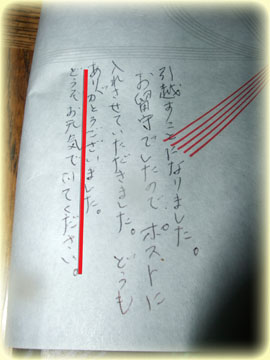 引越すことになりました。
お留守でしたので ポストに
入れさせていただきました。どうも
ありがとうございました。
どうぞお元気でいてください。